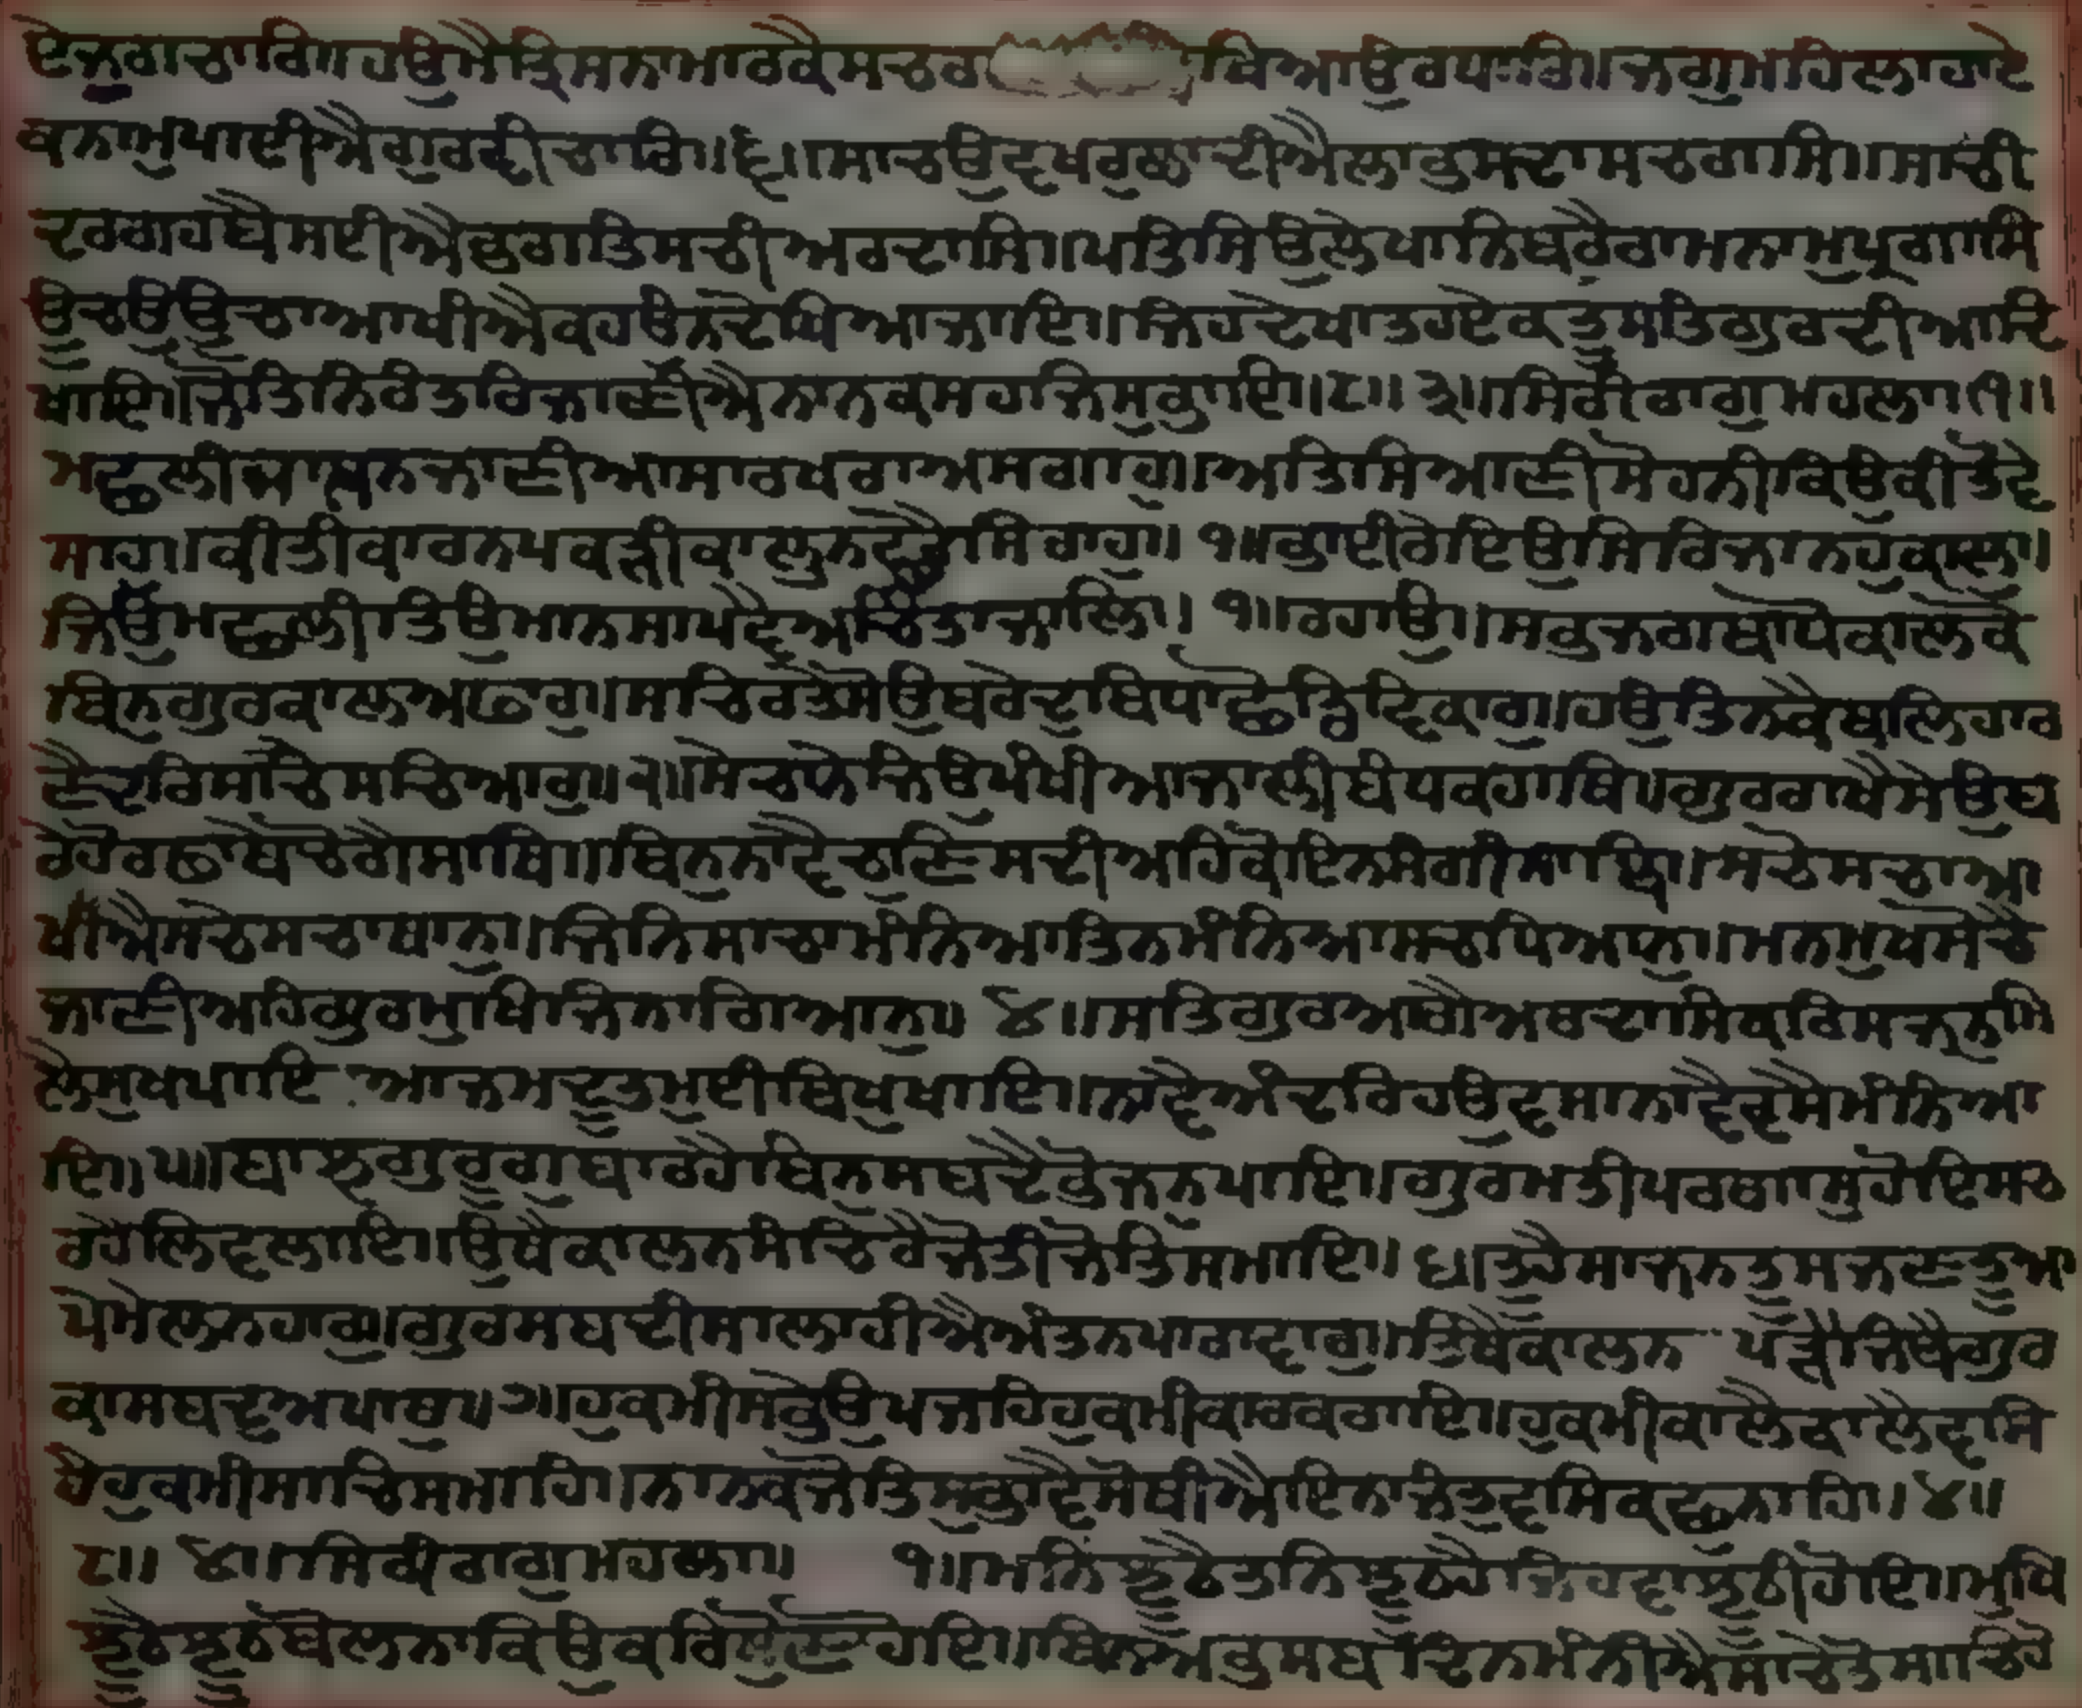 ਏਜੁਗਾਚਾਰਿ॥ਹਉਮੈਤ੍ਰਿਸਨਾਮਾਰਕੈਸਚਰ ਖਿਆਉਰਧਾਰਿ॥ਜਗੁਮਹਿਲਾਹਾਏ
ਕਨਾਮੁਪਾਈਐਗੁਰਵੀਚਾਰਿ॥੬॥ਸਾਚਉਵਖਰੁਲਾਦੀਐਲਾਭੁਸਦਾਸਚਰਾਸਿ॥ਸਾਚੀ
ਦਰਗਹਬੈਸਈਐਭਗਤਿਸਚੀਅਰਦਾਸਿ॥ਪਤਿਸਿਉਲੇਖਾਨਿਬੜੈਰਾਮਨਾਮੁਪ੍ਰਗਾਸਿ
ਊਚਉਊਚਾਆਖੀਐਕਹਉਨਦੇਖਿਆਜਾਇ॥ਜਿਹਦੇਖਾਤਹਏਕਤੂਸਤਿਗੁਰਦੀਆਦਿ
ਖਾਇ॥ਜੋਤਿਨਿਰੰਤਰਿਜਾਣੀਐਨਾਨਕਸਹਜਿਸੁਭਾਇ॥੮॥੩॥ਸਿਰੀਰਾਗੁਮਹਲਾ॥੧॥
ਮਛੁਲੀਜਾਲੁਨਜਾਣੀਆਸਾਰਖਰਾਅਸਗਾਹੁ॥ਅਤਿਸਿਆਣੀਸੋਹਨੀਕਿਉਕੀਤੋਵੇ
ਸਾਹੁ॥ਕੀਤੀਕਾਰਨਪਕੜੀਕਾਲੁਨਟਲੈਸਿਰਾਹੁ॥੧॥ਭਾਈਰੇਇਉਸਿਰਿਜਾਨਹੁਕਾਲ॥
ਜਿਉਮਛੁਲੀਤਿਉਮਾਨਸਾਪਵੈਅਚਿੰਤਾਜਾਲਿ॥੧॥ਰਹਾਉ॥ਸਭੁਜਗਬਾਧੋਕਾਲਕੋ
ਬਿਨਗੁਰਕਾਲਅਫਾਰੁ॥ਸਚਿਰਤੇਸੇਉਬਰੇਦੁਬਿਧਾਛੋਡਿਵਿਕਾਰੁ॥ਹਉਤਿਨਕੈਬਲਿਹਾਰ
ਣੈਦਰਿਸਚੈਸਚਿਆਰੁ॥੨॥ਸੀਚਨੇਜਿਉਪੰਖੀਆਜਾਲੀਬਧਿਕਹਾਥਿ॥ਗੁਰਰਾਖੇਸੇਉਬ
ਰੇਹੋਰਫਾਥੇਚੋਗੈਸਾਥਿ॥ਬਿਨੁਨਾਵੈਚੁਣਿਸਟੀਅਹਿਕੋਇਨਸੰਗੀਸਾਥਿ॥ਸਚੋਸਚਾਆ
ਖੀਐਸਚੇਸਚਾਥਾਨੁ॥ਜਿਨਿਸਾਚਾਮੰਨਿਆਤਿਨਮੰਨਿਆਸਚਧਿਆਨੁ॥ਮਨਮੁਖਸੂਚੇ
ਜਾਣੀਅਹਿਗੁਰਮੁਖਿਜਿਨਾਗਿਆਨੁ॥੪॥ਸਤਿਗੁਰਆਗੈਅਰਦਾਸਿਕਰਿਸਜਨਮਿ
ਲੈਸੁਖਪਾਇ ਆਜਮਦੂਤਮੁਈਬਿਖੁਖਾਇ॥ਨਾਵੈਅੰਦਰਿਹਉਵਸਾਨਾਵੈਵਸੈਮੰਨਿਆ
ਇ॥੫॥ਬਾਝੁਗੁਰੂਗੁਬਾਰਹੈਬਿਨੁਸਬਦੈਬੁਝਨਪਾਇ॥ਗੁਰਮਤੀਪਰਗਾਸੁਹੋਇਸਚ
ਰਹੈਲਿਵਲਾਇ॥ਉਥੈਕਾਲਨਸੰਚਰੈਜੋਤੀਜੋਤਿਸਮਾਇ॥੬॥ਤੂਹੈਸਾਜਨਤੂਸਜਣਤੂਆ
ਪੇਮੇਲਨਹਾਰੁ॥ਗੁਰਸਬਦੀਸਾਲਾਹੀਐਅੰਤਨਪਾਰਾਵਾਰੁ॥ਤਿਥੈਕਾਲਨ ਪਹੁੰਚੈਜਿਥੈਗੁਰ
ਕਾਸਬਦੁਅਪਾਰੁ॥੭॥ਹੁਕਮੀਸਭੇਉਪਜਹਿਹੁਕਮੀਕਾਰਕਰਾਇ॥ਹੁਕਮੀਕਾਲੈਕਾਲੈਵਸਿ
ਹੈਹੁਕਮੀਸਾਚਿਸਮਾਹਿ॥ਨਾਨਕਜੋਤਿਸੁਭਾਵੈਸੋਥੀਐਇਨਾਜੰਤਵਸਿਕਛੁਨਾਹਿ॥੪॥
੮॥੪॥ਸਿਰੀਰਾਗੁਮਹਲਾ॥ ੧॥ਮਨਿਝੂਠੈਤਨਿਝੂਠਹੈਜਿਹਵਾਝੂਠੀਹੋਇ॥ਮੁਖਿ
ਝੂਠੈਝੂਠਬੋਲਨਾਕਿਉਕਰਿਸੂਚਾਹੋਇ॥ਬਿਨੁਅਭਸਬਦਿਨਮੰਨੀਐਸਾਚੇਤੇਸਚਿਹੋ